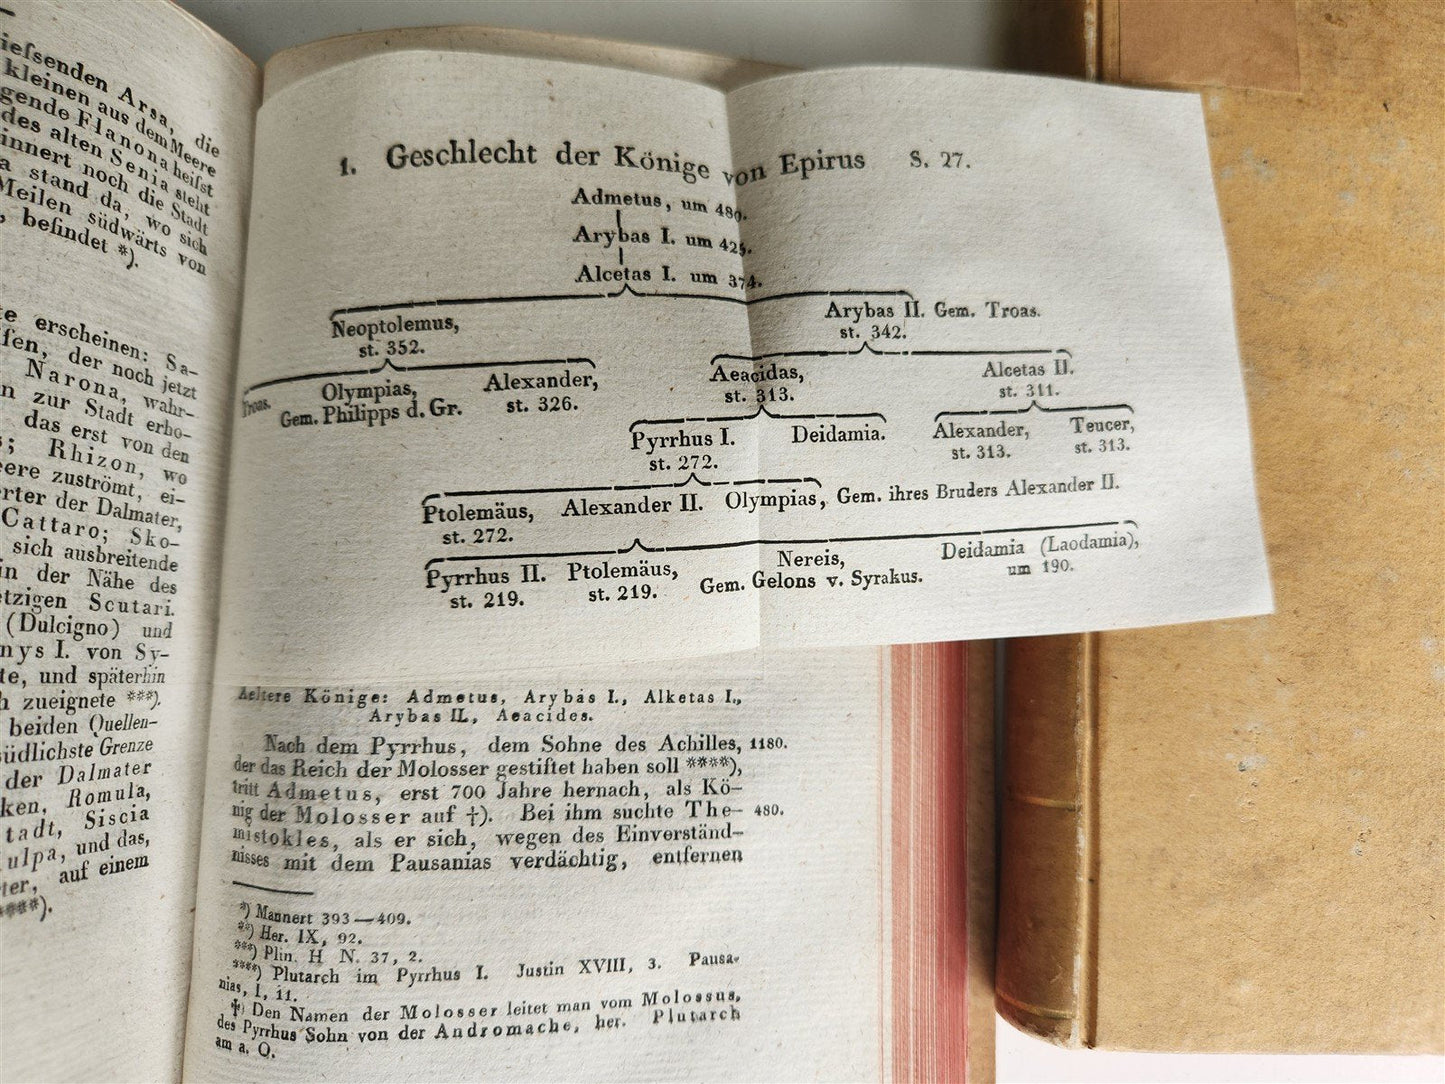 ieſsenden Arsa, die
kleinen aus dem Meere
gende Flanona heiſst
des alten Senia steht
innert noch die Stadt
a stand da, wo sich
Meilen südwärts von
, beſindet *).
te erscheinen: Sa-
fen, der noch jetzt
Narona, wahr-
n zur Stadt erho-
das erst von den
s; Rhizon, wo
eere zuströmt, ei-
rter der Dalmater,
Cattaro; Sko-
sich ausbreitende
in der Nähe des
etzigen Scutari.
(Dulcigno) und
nys I. von Sy-
te, und späterhin
h zueignete ***).
beiden Quellen-
südlichste Grenze
der Dalmater
ken, Romula,
tadt, Siscia
ulpa, und das,
ter, auf einem
****).
1. Geschlecht der Könige von Epirus S. 27.
Admetus, um 480.
Arybas I. um 425.
Alcetas I. um 374.
Neoptolemus, Arybas II. Gem. Troas.
st. 352. st. 342.
Troas. Olympias, Alexander, Aeacidas, Alcetas II.
Gem. Philipps d. Gr. st. 326. st. 313. st. 311.
Pyrrhus I. Deidamia. Alexander, Teucer,
st. 272. st. 313. st. 313.
Ptolemäus, Alexander II. Olympias, Gem. ihres Bruders Alexander II.
st. 272.
Pyrrhus II. Ptolemäus, Nereis, Deidamia (Laodamia),
st. 219. st. 219. Gem. Gelons v. Syrakus. um 190.
Aeltere Könige: Admetus, Arybas I., Alketas I.,
Arybas II., Aeacides.
Nach dem Pyrrhus, dem Sohne des Achilles, 1180.
der das Reich der Molosser gestiftet haben soll ****),
tritt Admetus, erst 700 Jahre hernach, als Kö-
nig der Molosser auf †). Bei ihm suchte The- 480.
mistokles, als er sich, wegen des Einverständ-
nisses mit dem Pausanias verdächtig, entfernen
*) Mannert 393—409.
**) Her. IX, 92.
***) Plin. H N. 37, 2.
****) Plutarch im Pyrrhus I. Justin XVIII, 3. Pausa-
nias, I, 11.
†) Den Namen der Molosser leitet man vom Molossus,
des Pyrrhus Sohn von der Andromache, her. Plutarch
am a. O.